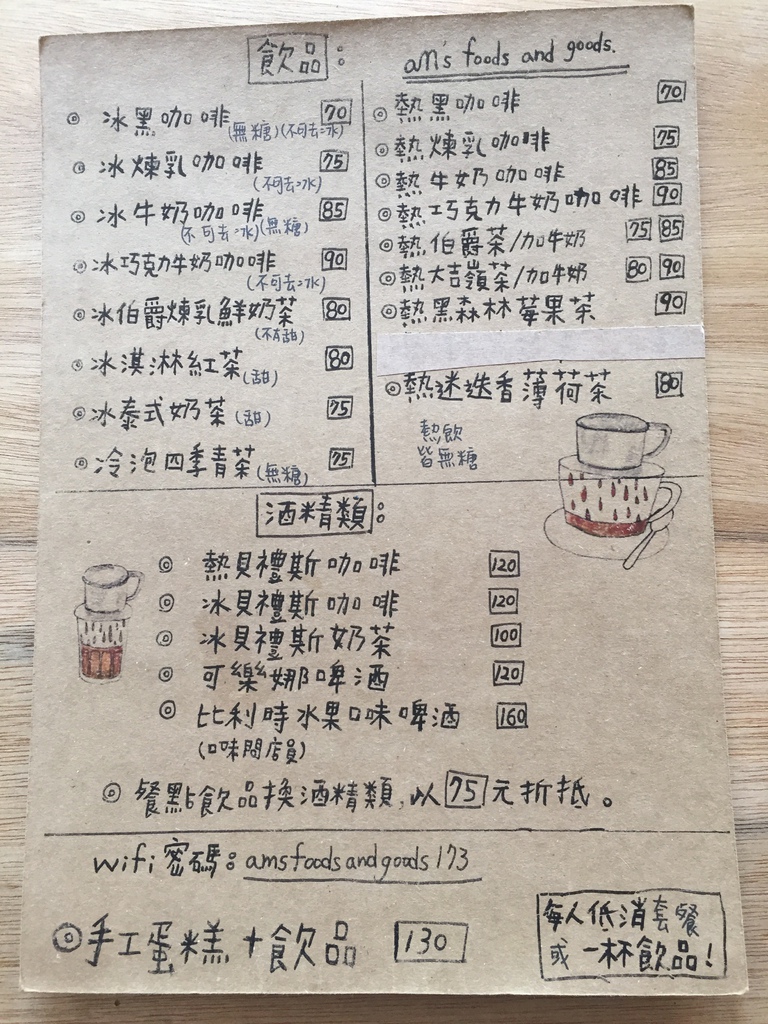 飲品：
◎ 冰黑咖啡(無糖)(不可去冰) 70
◎ 冰煉乳咖啡 75
(不可去冰)
◎ 冰牛奶咖啡 85
(不可去冰)(無糖)
◎ 冰巧克力牛奶咖啡 90
(不可去冰)
◎ 冰伯爵煉乳鮮奶茶 80
◎ 冰淇淋紅茶(甜) 80
◎ 冰泰式奶茶(甜) 75
◎ 冷泡四季青茶(無糖) 75
am's foods and goods.
◎ 熱黑咖啡 70
◎ 熱煉乳咖啡 75
◎ 熱牛奶咖啡 85
◎ 熱巧克力牛奶咖啡 90
◎ 熱伯爵茶/加牛奶 75 85
◎ 熱大吉嶺茶/加牛奶 80 90
◎ 熱黑森林莓果茶 90
◎ 熱迷迭香薄荷茶 80
熱飲
皆無糖
酒精類：
◎ 熱貝禮斯咖啡 120
◎ 冰貝禮斯咖啡 120
◎ 冰貝禮斯奶茶 100
◎ 可樂娜啤酒 120
◎ 比利時水果口味啤酒 160
(口味問店員)
◎ 餐點飲品換酒精類，以75元折抵。
wifi密碼：amsfoodsandgoods173
◎手工蛋糕+飲品 130
每人低消套餐
或一杯飲品！